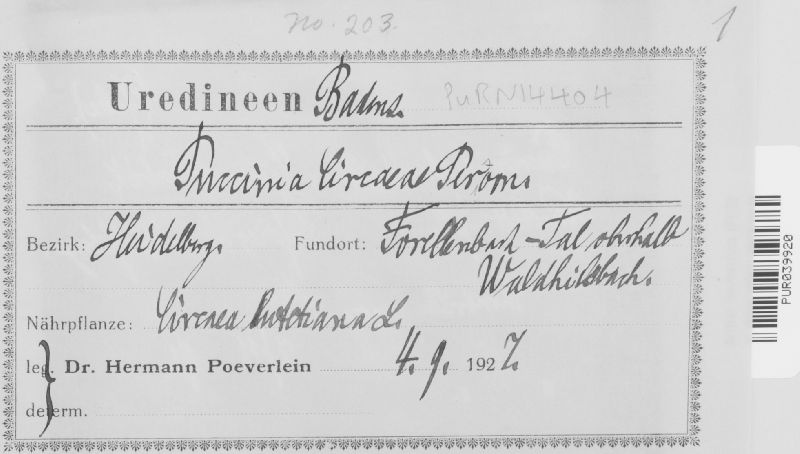 No. 203.
1
Uredineen Badens.
PuRN14404
Puccinia Circaeae Persoon.
Bezirk: Heidelberg. Fundort: Forellenbach-Tal oberhalb
Waldhilsbach.
Nährpflanze: Circaea lutetiana L.
leg. Dr. Hermann Poeverlein 4. 9. 1927.
determ.
PUR039920